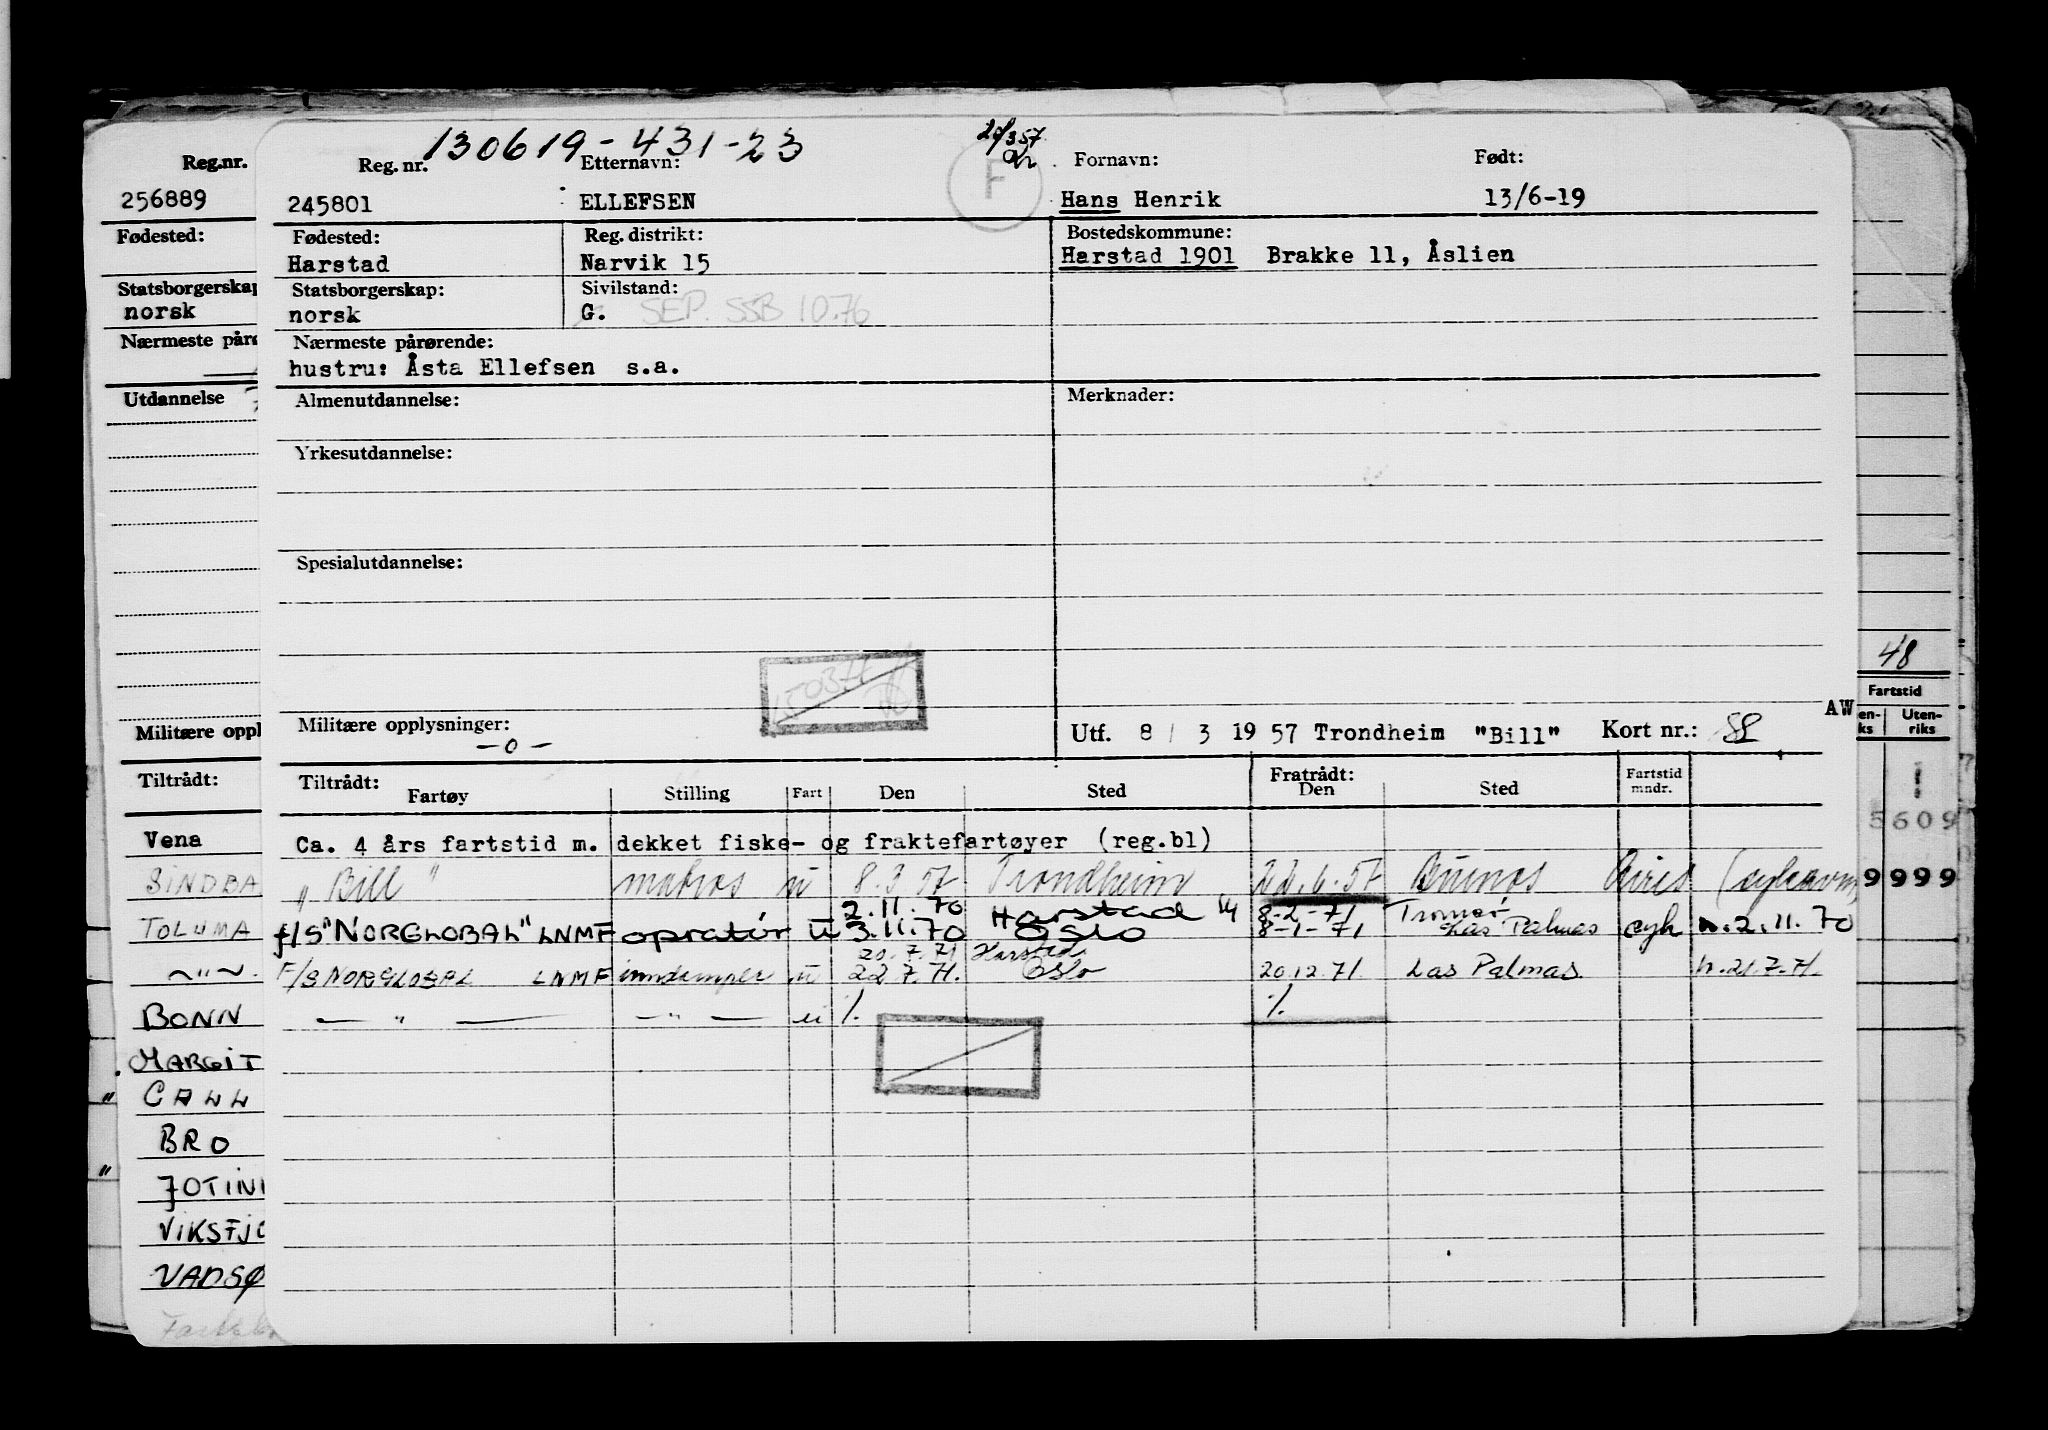 130619-431-23
Reg.nr. Reg. nr. Etternavn: F Fornavn: Født:
256889 245801 ELLEFSEN Hans Henrik 13/6-19
Fødested: Fødested: Reg. distrikt: Bostedskommune:
Harstad Narvik 15 Harstad 1901 Brakke 11, Åslien
Statsborgerskap Statsborgerskap: Sivilstand:
norsk norsk G. SEP. SSB 10.76
Nærmeste Nærmeste pårørende:
hustru: Åsta Ellefsen s.a.
Utdannelse Almenutdannelse: Merknader:
Yrkesutdannelse:
Spesialutdannelse:
48
Fartstid
Militære Militære opplysninger: Utf. 8 / 3 19 57 Trondheim "Bill" Kort nr.: AW
- o -
Uten-
riks
Tiltrådt: Tiltrådt: Fratrådt: Fartstid
Fartøy Stilling Fart Den Sted Den Sted mndr.
5609
Vena Ca. 4 års fartstid m. dekket fiske- og fraktefartøyer (reg.bl)
SINDBA "Bill" matros u 8.3.57 Trondheim 22.6.57 Buenos Aires 9999
2.11.70 Harstad 8-2-71 Tromsø
TOLUMA f/S "NORGLOBAL" LNMF opratør u 3.11.70 Oslo 8-1-71 Las Palmas syk h.2.11.70
20.7.71 Harstad
-"- F/S NORGLOBAL LNMF inndamper u 22.7.71. Oslo 20.12.71. Las Palmas. h.21.7.71.
BONN — " — — " — u %. %.
MARGIT
" CALL
BRO
" JOTINI
VIKSFJO
VADSØ